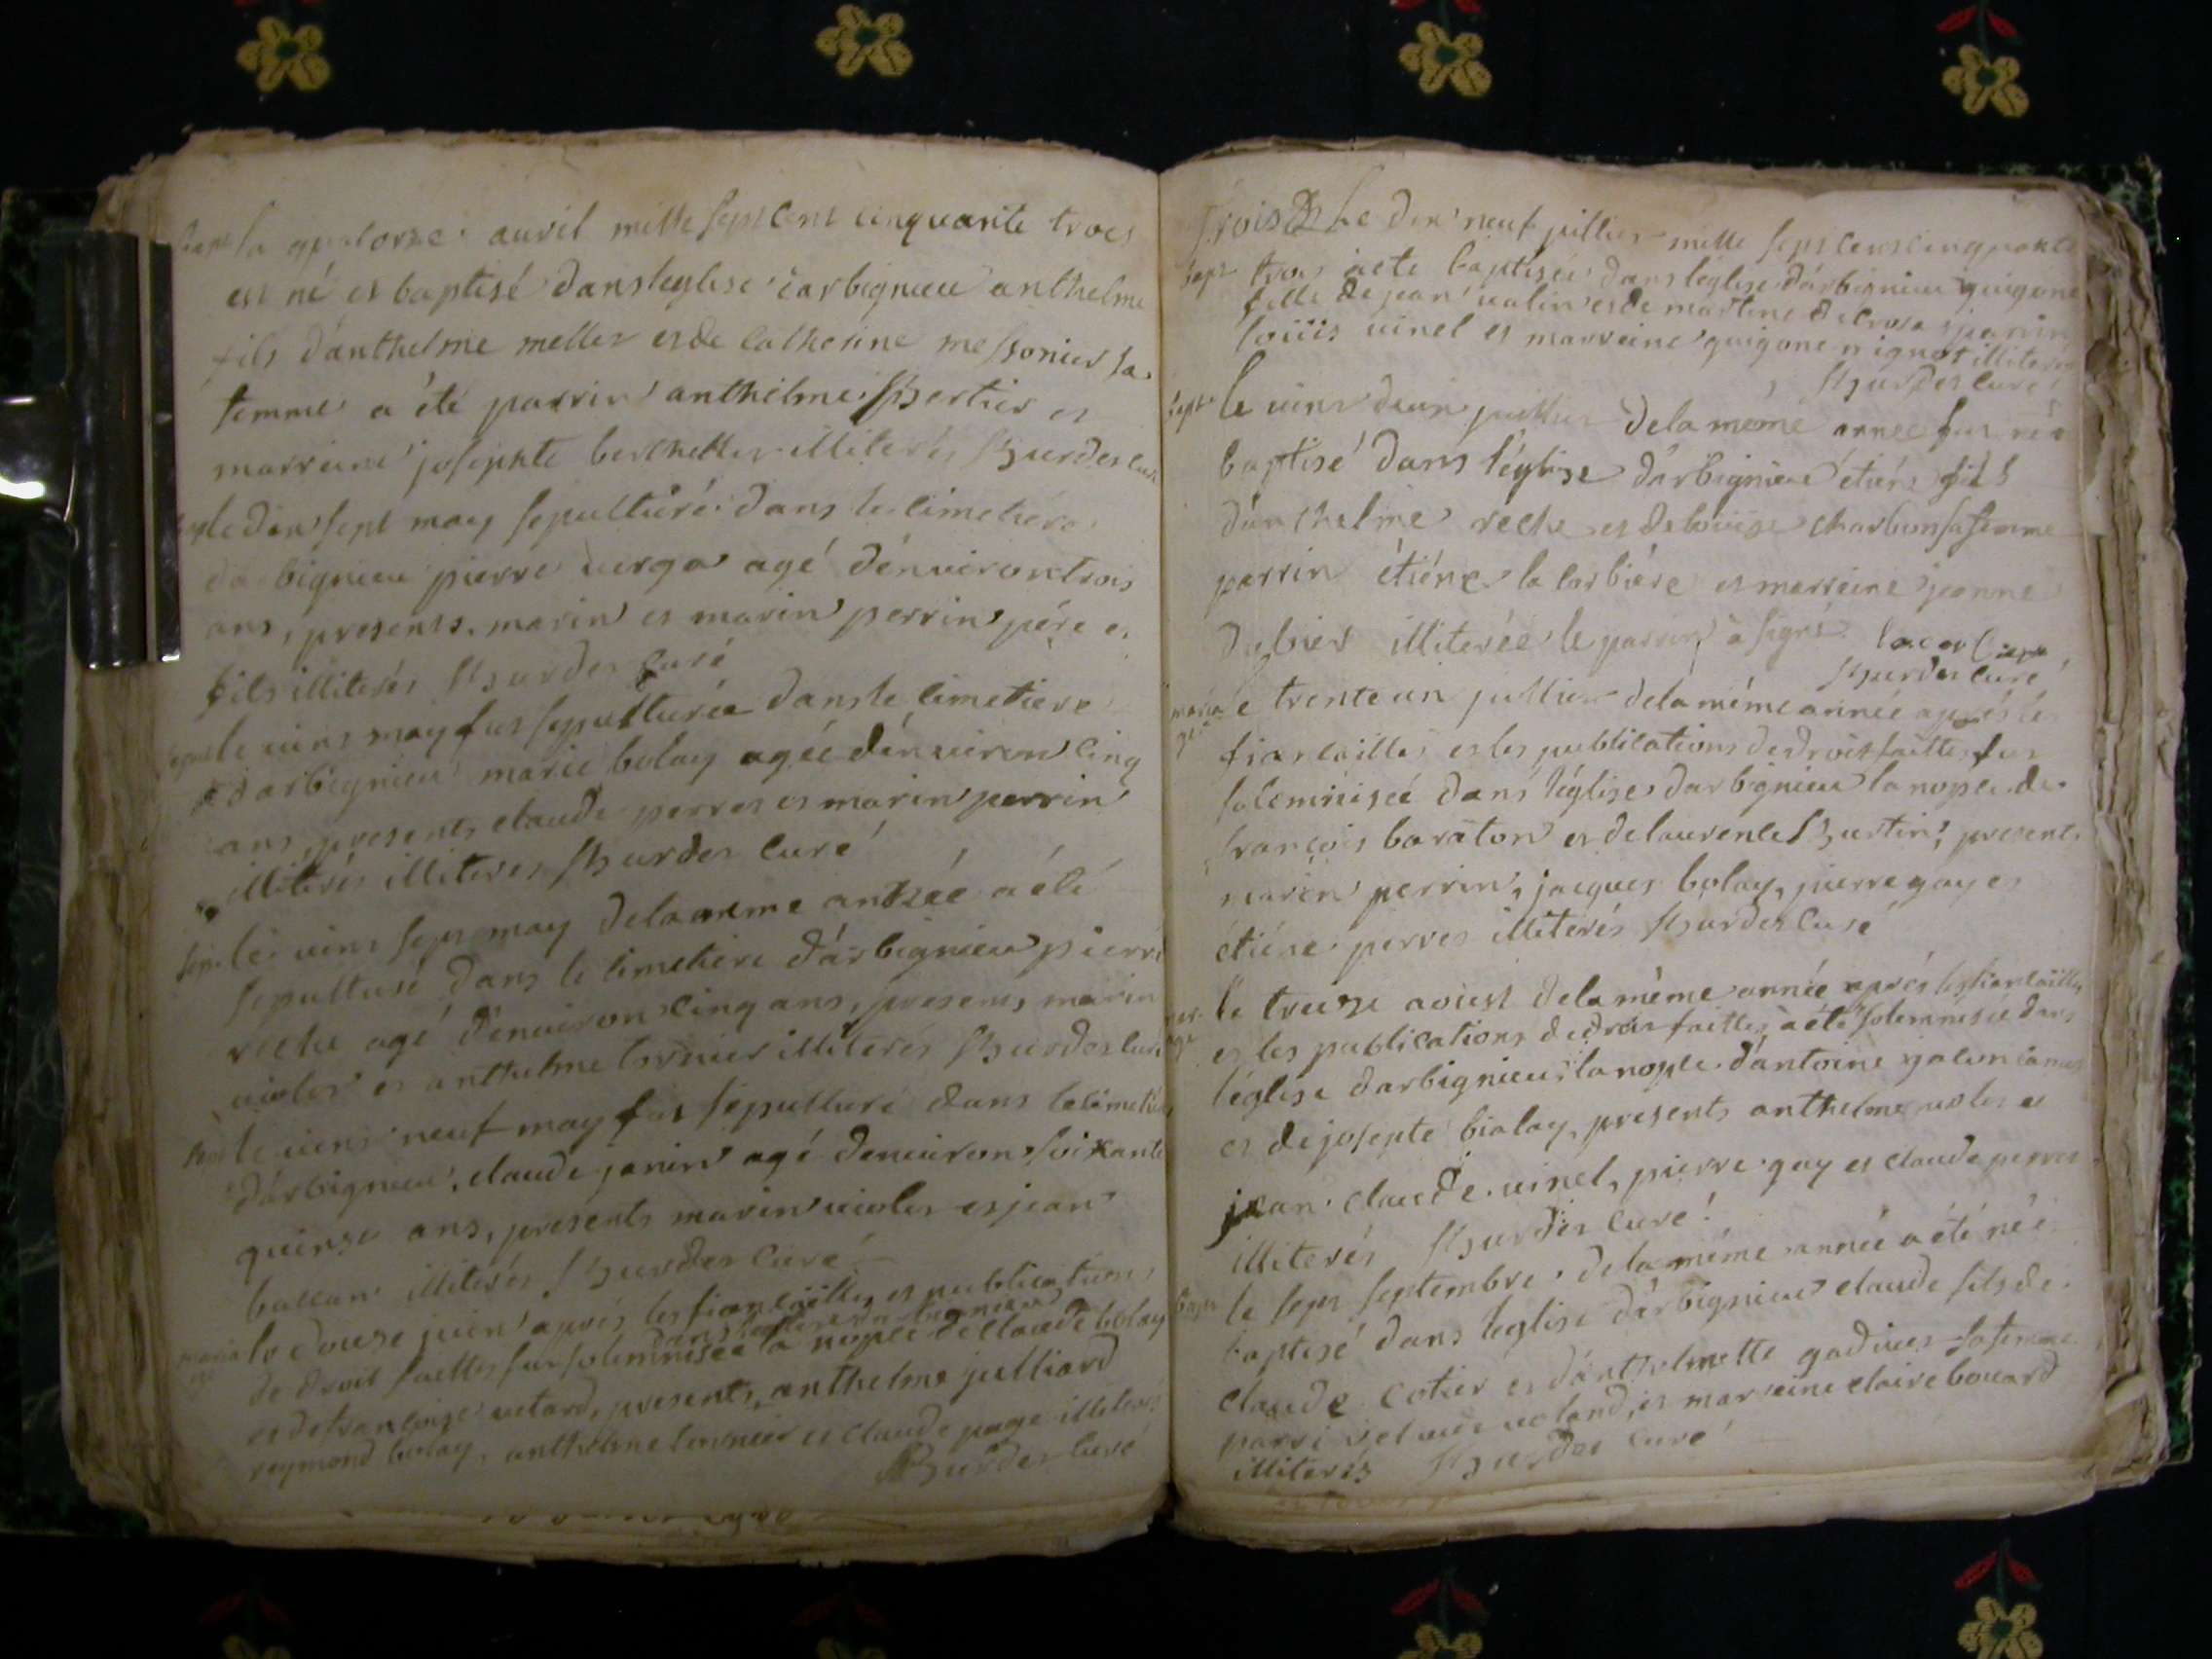 bapt la quatorze avril mille sept cent cinquante trois
est né et baptisé dans leglise darbignieu anthelme
fils d'anthelme meller et de catherine messonier sa
femme a été parrin anthelme et
marreine josephte illiterés curé
le dix sept may sepulturé dans le cimetiére
darbignieu pierre verga agé d'énviron trois
ans, presents, marin et marin perrin pére et
fils illiterés curé
le vint may fut sepulturée dans le cimetiere
d'arbignieu marie bolay agée d'énviron cinq
ans, presents claude perret et marin perrin
illitérés illiteres curé
sep. le vint sept may de la meme année a été
sepulturé dans le cimetiére d'árbignieu pierre
reche agé d'énviron cinq ans, presents marin
violet et anthelme tornier illiterés
le vint neuf may fut sepulturé dans le cimetiére
d'árbignieu, claude janin agé d'environ soixante
quinze ans, presents marin violet et jean
ballan illiterés curé
maria le douze juin aprés les fiançailles et publications
ge dans leglise darbignieu
de droit faittes fut solemnisée la nopce de claude bolay
et de françoise vetard, presents, anthelme julliard
reymond bolay, anthelme tornier et claude page illiterés
curé
trois Le dix neuf jullier mille sept cens cinquante
bapt trois a été baptisée dans léglise d'árbignieu guigone
fille de jean valin et de martine parrin
loüis vinel et marreine guigone illiterés
curé
bapt le vint deux jullier de la méme année fut né et
baptisé dans l'églize d'árbignieu étiéne fils
d'ánthelme reche et de loüise charbon sa femme
parrin étiéne la corbiére et marreine jeanne
illiterée le parrin à signé. lacorbiere
curé
maria e trente un jullier de la méme année aprés les
ge fiançailles et les publications de droit faittes fut
solemnisée dans léglise darbignieu la nopce de
françois baraton et de laurence presents
marin perrin, jacques bolay, pierre gay et
étiéne perret illiterés curé
mar- le treize aoust de la méme année aprés les fiançailles
age et les publications de droit faittes, a été solemnisée dans
léglise darbignieu, la nopce d'ántoine
et de josepte bialay, presents anthelme violet et
jean claude vinel, pierre gay et claude perret
illiterés curé
bapt le sept septembre de la méme année a été né é
baptisé dans leglise d'árbignieu claude fils de
claude cotier et d'ánthelmette sa femme
parri claude voland, et marreine claire bouard
illiterés curé